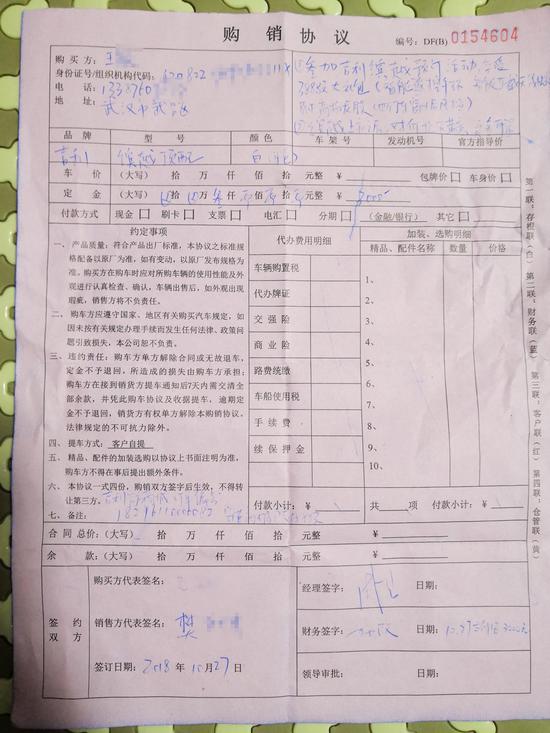 购 销 协 议
编号：DF(B) 0154604
购 买 方：王
身份证号/组织机构代码：
电 话：
地 址：武汉市武昌
品 牌 型 号 颜 色 车 架 号 发动机号 官方指导价
吉利 缤越顶配 白
车 价 （大写） 拾 万 仟 佰 拾 元整 ¥ 包牌价 □ 车身价 □
定 金 （大写） 拾 万 仟 佰 拾 元整 ¥
付款方式 现金 □ 刷卡 □ 支票 □ 电汇 □ 分期 □ （金融/银行） 其它 □
约定事项 代办费用明细 加装、选购明细
精品、配件名称 数量 价格
一、产品质量：符合产品出厂标准，本协议之标准规
格配备以原厂为准，如有变动，以原厂发布规格为
准。购买方在购车时应对所购车辆的使用性能及外
观进行认真检查、确认，车辆出售后，如外观出现
瑕疵，销售方将不负责任。
二、购车方应遵守国家、地区有关购买汽车规定，如
因未按有关规定办理手续而发生任何法律、政策问
题引致损失，本公司恕不负责。
三、违约责任：购车方单方解除合同或无故退车，
定金不予退回，所造成的损失由购车方承担；
购车方在接到销货方提车通知后7天内需交清全
部余款，并凭此购车协议及收据提车，逾期定
金不予退回，销货方有权单方解除本购销协议。
法律规定的不可抗力除外。
四、提车方式：客户自提
五、精品、配件的加装选购以协议上书面注明为准，
购车方不得在事后提出额外条件。
六、本协议一式四份，购销双方签字后生效，不得转
让第三方。
七、备注：
车辆购置税
代办牌证
交 强 险
商 业 险
路费统缴
车船使用税
手 续 费
续 保 押 金
1、
2、
3、
4、
5、
6、
7、
8、
9、
10、
付款小计：¥ 共 项 付款小计：¥
合同 总价：（大写） 拾 万 仟 佰 拾 元整 ¥
余 款：（大写） 拾 万 仟 佰 拾 元整 ¥
签 约
双 方
购买方代表签名：
销售方代表签名：樊
签订日期：2018 年 10月27日
经理签字： 日期：
财务签字： 日期：
领导审批： 日期：
第一联：存根联（白） 第二联：财务联（蓝） 第三联：客户联（红） 第四联：仓管联（黄）